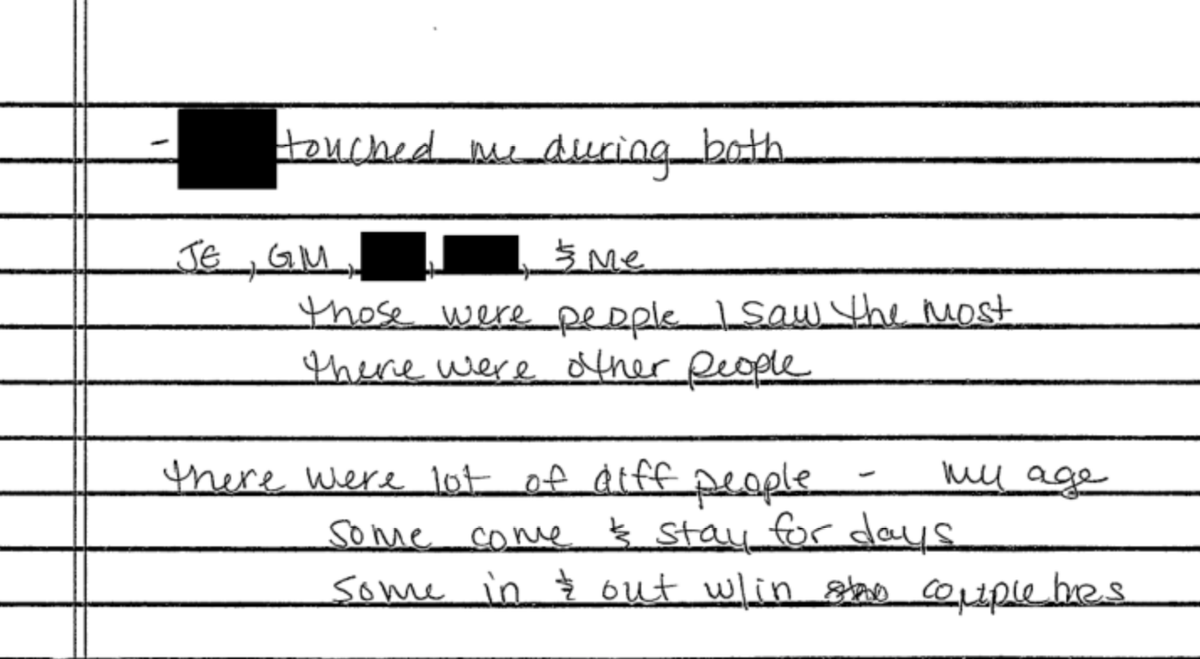 - touched me during both
JE, GM, , , & Me
those were people I saw the most
there were other people
there were lot of diff people - my age
some come & stay for days
some in & out w/in couple hrs